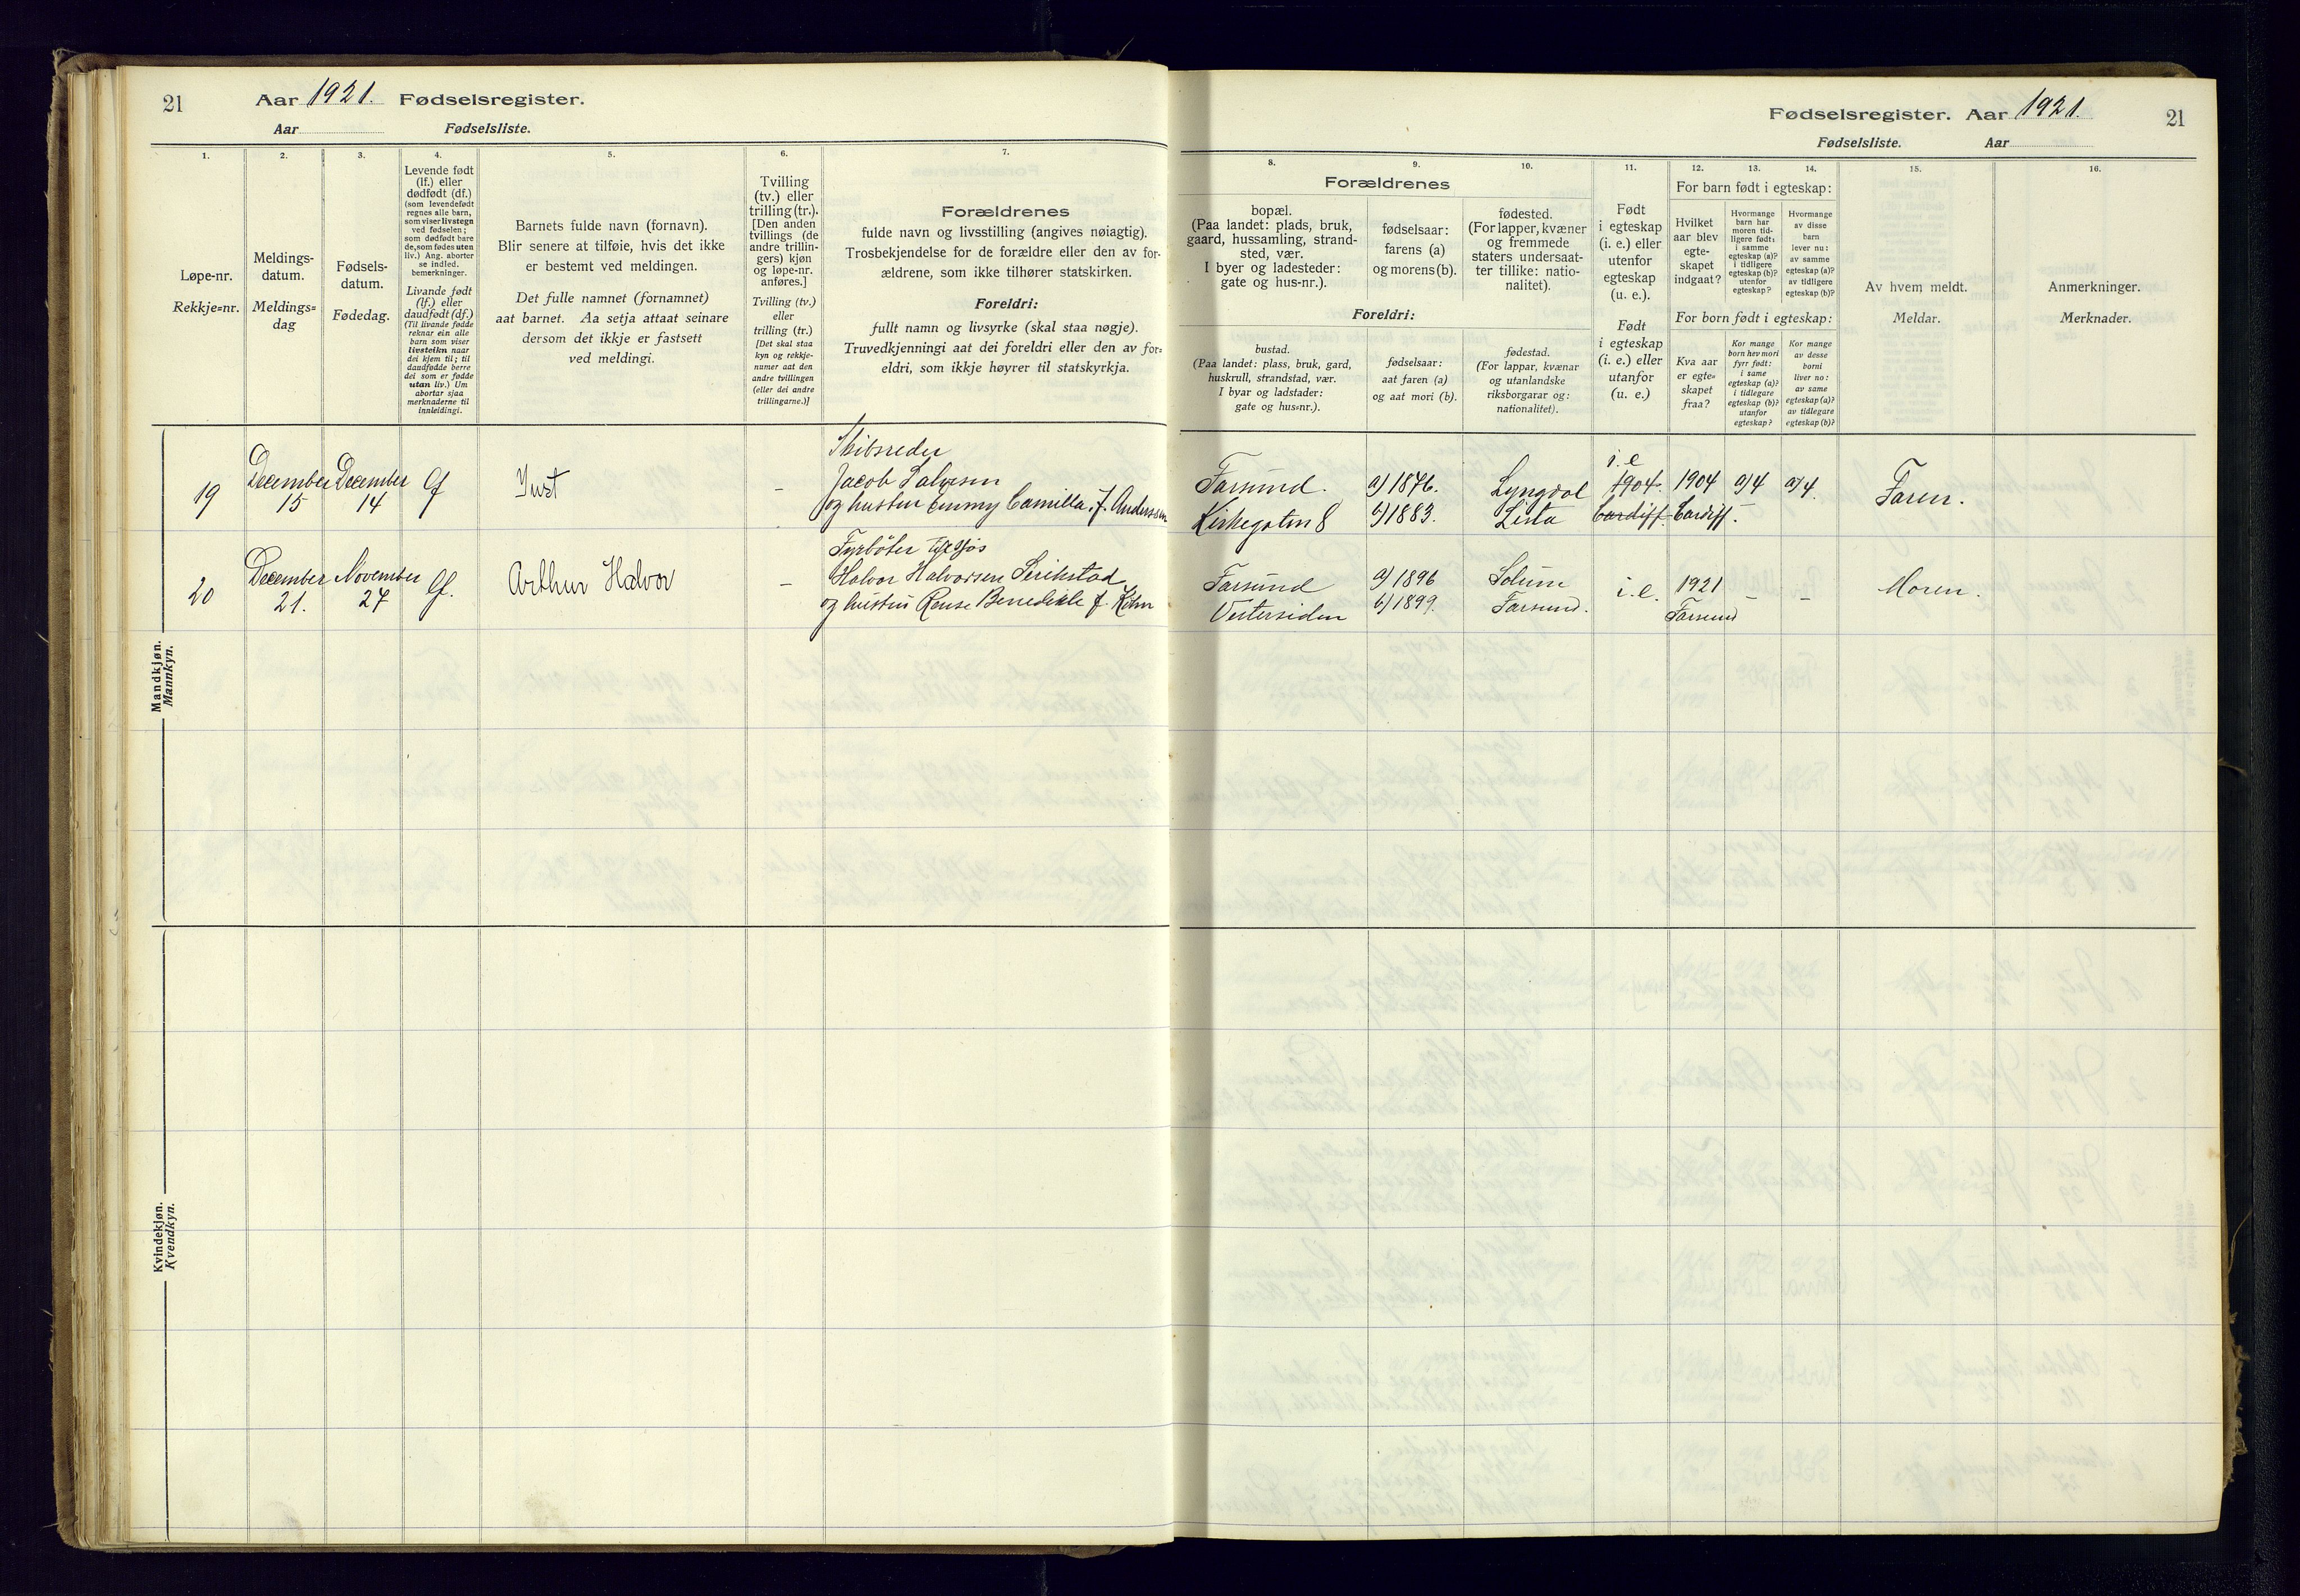 21 Aar 1921. Fødselsregister.
Aar Fødselsliste.
1. 2. 3. 4. 5. 6. 7.
Løpe-nr.
Rekkje=nr.
Meldings-
datum.
Meldings=
dag
Fødsels-
datum.
Fødedag.
Levende født
(lf.) eller
dødfødt (df.)
(som levendefødt
regnes alle barn,
som viser livstegn
ved fødselen;
som dødfødt bare
de, som fødes uten
liv.) Ang. aborter
se indled.
bemerkninger.
Livande født
(lf.) eller
daudfødt (df.)
(Til livande fødde
reknar ein alle
barn som viser
livsteikn naar
dei kjem til; til
daudfødde berre
dei som er fødde
utan liv.) Um
abortar sjaa
merknaderne til
innleidingi.
Barnets fulde navn (fornavn).
Blir senere at tilføie, hvis det ikke
er bestemt ved meldingen.
Det fulle namnet (fornamnet)
aat barnet. Aa setja attaat seinare
dersom det ikkje er fastsett
ved meldingi.
Tvilling
(tv.) eller
trilling (tr.).
[Den anden
tvillings (de
andre trillin-
gers) kjøn
og løpe-nr.
anføres.]
Tvilling (tv.)
eller
trilling (tr.)
[Det skal staa
kyn og rekkje-
numer aat den
andre tvillingen
(eller dei andre
trillingarne.)]
Forældrenes
fulde navn og livsstilling (angives nøiagtig).
Trosbekjendelse for de forældre eller den av for-
ældrene, som ikke tilhører statskirken.
Foreldri:
fullt namn og livsyrke (skal staa nøgje).
Truvedkjenningi aat dei foreldri eller den av for=
eldri, som ikkje høyrer til statskyrkja.
Mandkjøn.
Mannkyn.
19 December 15 December 14 lf Just -
Skibsreder
Jacob Salvesen
og hustru Emmy Camilla f. Andersen
20 December 21. November 27 lf. Arthur Halvor -
Fyrbøter tilsjøs
Halvor Halvorsen
og hustru Benedikte f.
Kvindekjøn.
Kvendkyn.
Fødselsregister. Aar 1921. 21
Fødselsliste. Aar
8. 9. 10. 11. 12. 13. 14. 15. 16.
Forældrenes
bopæl.
(Paa landet: plads, bruk,
gaard, hussamling, strand-
sted, vær.
I byer og ladesteder:
gate og hus-nr.).
fødselsaar:
farens (a)
og morens (b).
fødested.
(For lapper, kvæner
og fremmede
staters undersaat-
ter tillike: natio-
nalitet).
Foreldri:
bustad.
(Paa landet: plass, bruk, gard,
huskrull, strandstad, vær.
I byar og ladstader:
gate og hus=nr.).
fødselsaar:
aat faren (a)
og aat mori (b).
fødestad.
(For lappar, kvænar
og utanlandske
riksborgarar og:
nationalitet).
Født
i egteskap
(i. e.) eller
utenfor
egteskap
(u. e.).
Født
i egteskap
(i. e.) eller
utanfor
(u. e.)
For barn født i egteskap:
Hvilket
aar blev
egte-
skapet
indgaat?
Hvormange
barn har
moren tid-
ligere født:
i samme
egteskap (a)?
i tidligere
egteskap (b)?
utenfor
egteskap?
Hvormange
av disse
barn
lever nu:
av samme
egteskap (a)?
av tidligere
egteskap (b)?
For born født i egteskap:
Kva aar
er egte-
skapet
fraa?
Kor mange
born hev mori
fyrr født:
i same
egteskap (a)?
i tidlegare
egteskap (b)?
utanfor
egteskap?
Kor mange
av desse
borni
liver no:
av same
egteskap (a)?
av tidlegare
egteskap (b)?
Av hvem meldt.
Meldar.
Anmerkninger.
Merknader.
Farsund. a) 1876. Lyngdal i. e 1904. 1904 a) 4 a) 4. Faren.
Kirkegaten 8 b) 1883. Lista Cardiff. Cardiff.
Farsund a) 1896 Solum i. e. 1921 - - Moren.
Vestersiden b) 1899. Farsund. Farsund